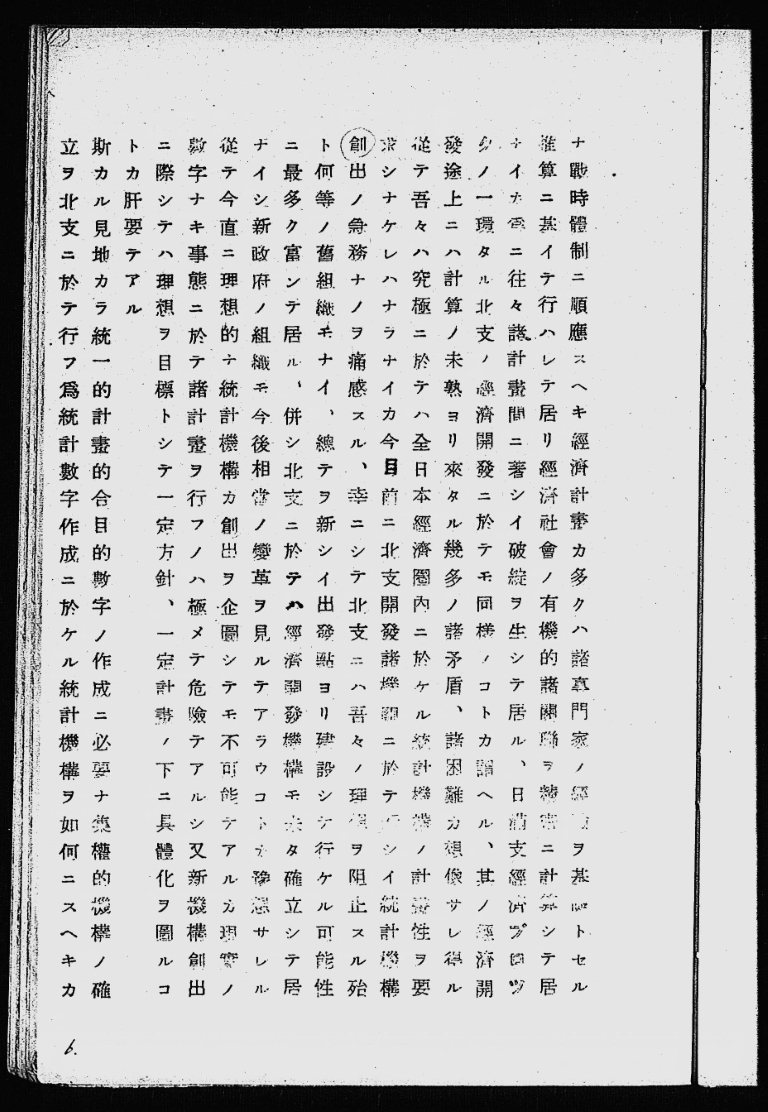 ナ戰時體制ニ順應スヘキ經濟計畫カ多クハ諸專門家ノ經ヲ基トセル
推算ニ基イテ行ハレテ居リ經濟社會ノ有機的諸關聯ヲ精密ニ計算シテ居
ナイカ爲ニ往々諸計畫間ニ著シイ破綻ヲ生シテ居ル、日滿支經濟ブロツ
クノ一環タル北支ノ經濟開發ニ於テモ同樣ノコトカ謂ヘル、其ノ經濟開
發途上ニハ計算ノ未熟ヨリ來タル幾多ノ諸矛盾、諸困難カ想像サレ得ル
從テ吾々ハ究極ニ於テハ全日本經濟圈內ニ於ケル統計機構ノ計畫性ヲ要
求シナケレハナラナイカ今目前ニ北支開發諸機關ニ於テシイ統計機構
創出ノ急務ナノヲ痛感スル、幸ニシテ北支ニハ吾々ノ理想ヲ阻止スル殆
ト何等ノ舊組織モナイ、總テヲ新シイ出發點ヨリ建設シテ行ケル可能性
ニ最多ク富ンテ居ル、併シ北支ニ於テハ經濟開發機構モ未タ確立シテ居
ナイシ新政府ノ組織モ今後相當ノ變革ヲ見ルテアラウコトカ豫想サレル
從テ今直ニ理想的ナ統計機構カ創出ヲ企圖シテモ不可能テアルカ現實ノ
數字ナキ事態ニ於テ諸計畫ヲ行フノハ極メテ危險テアルシ又新機構創出
ニ際シテハ理想ヲ目標トシテ一定方針、一定計畫ノ下ニ具體化ヲ圖ルコ
トカ肝要テアル
斯カル見地カラ統一的計畫的合目的數字ノ作成ニ必要ナ集權的機構ノ確
立ヲ北支ニ於テ行フ爲統計數字作成ニ於ケル統計機構ヲ如何ニスヘキカ
6.